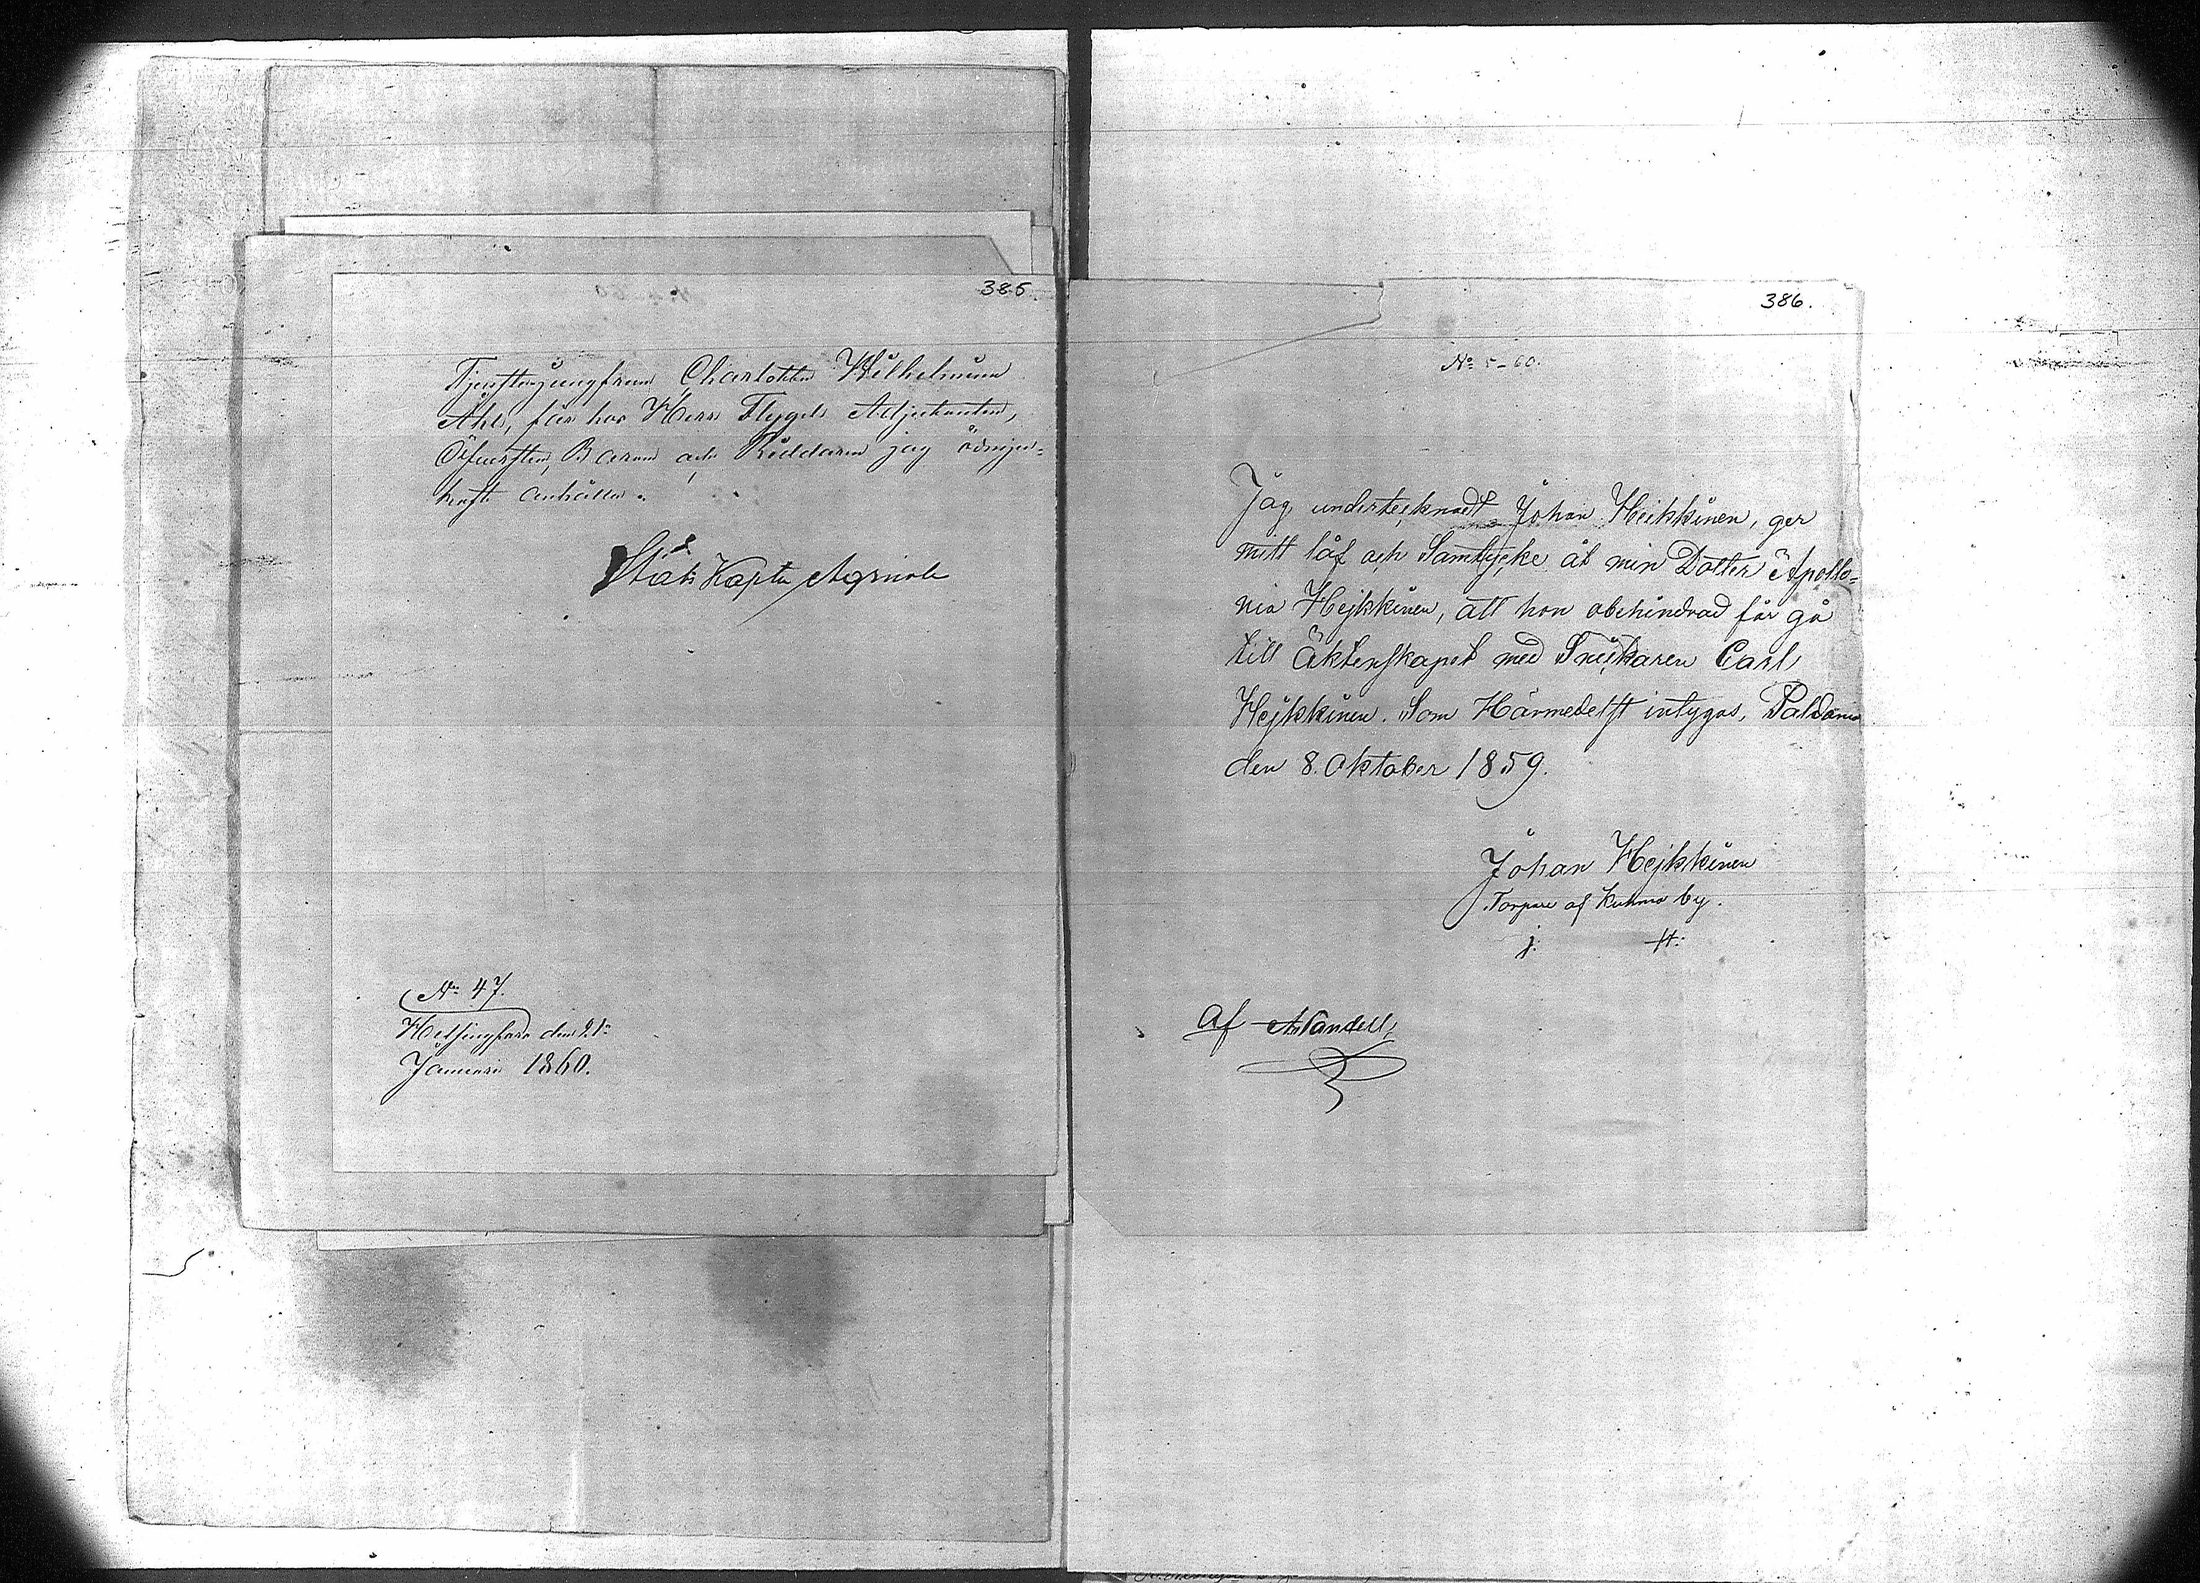 385.
Tjenstejungfrun Charlotta Wilhelmina
Åhls, får hos Herr Flygel Adjutanten,
Öfversten, Baron och Riddaren jag ödmju-
kast anhålla.
Stabs Kapten
No 47.
Helsingfors den 21:
Januari 1860.
386.
No 5-60.
Jag undertecknad Johan Heikkinen, ger
mitt låf och Samtycke åt min Dotter Apollo=
nia Hejkkinen, att hon obehindrad får gå
till Äktenskapet med Snickaren Carl
Hejkkinen. Som Härmedelst intygas, Paldamo
den 8. Oktober 1859.
Johan Hejkkinen
Torpare af Kuhmo by.
J: H:
Af A Vandell,